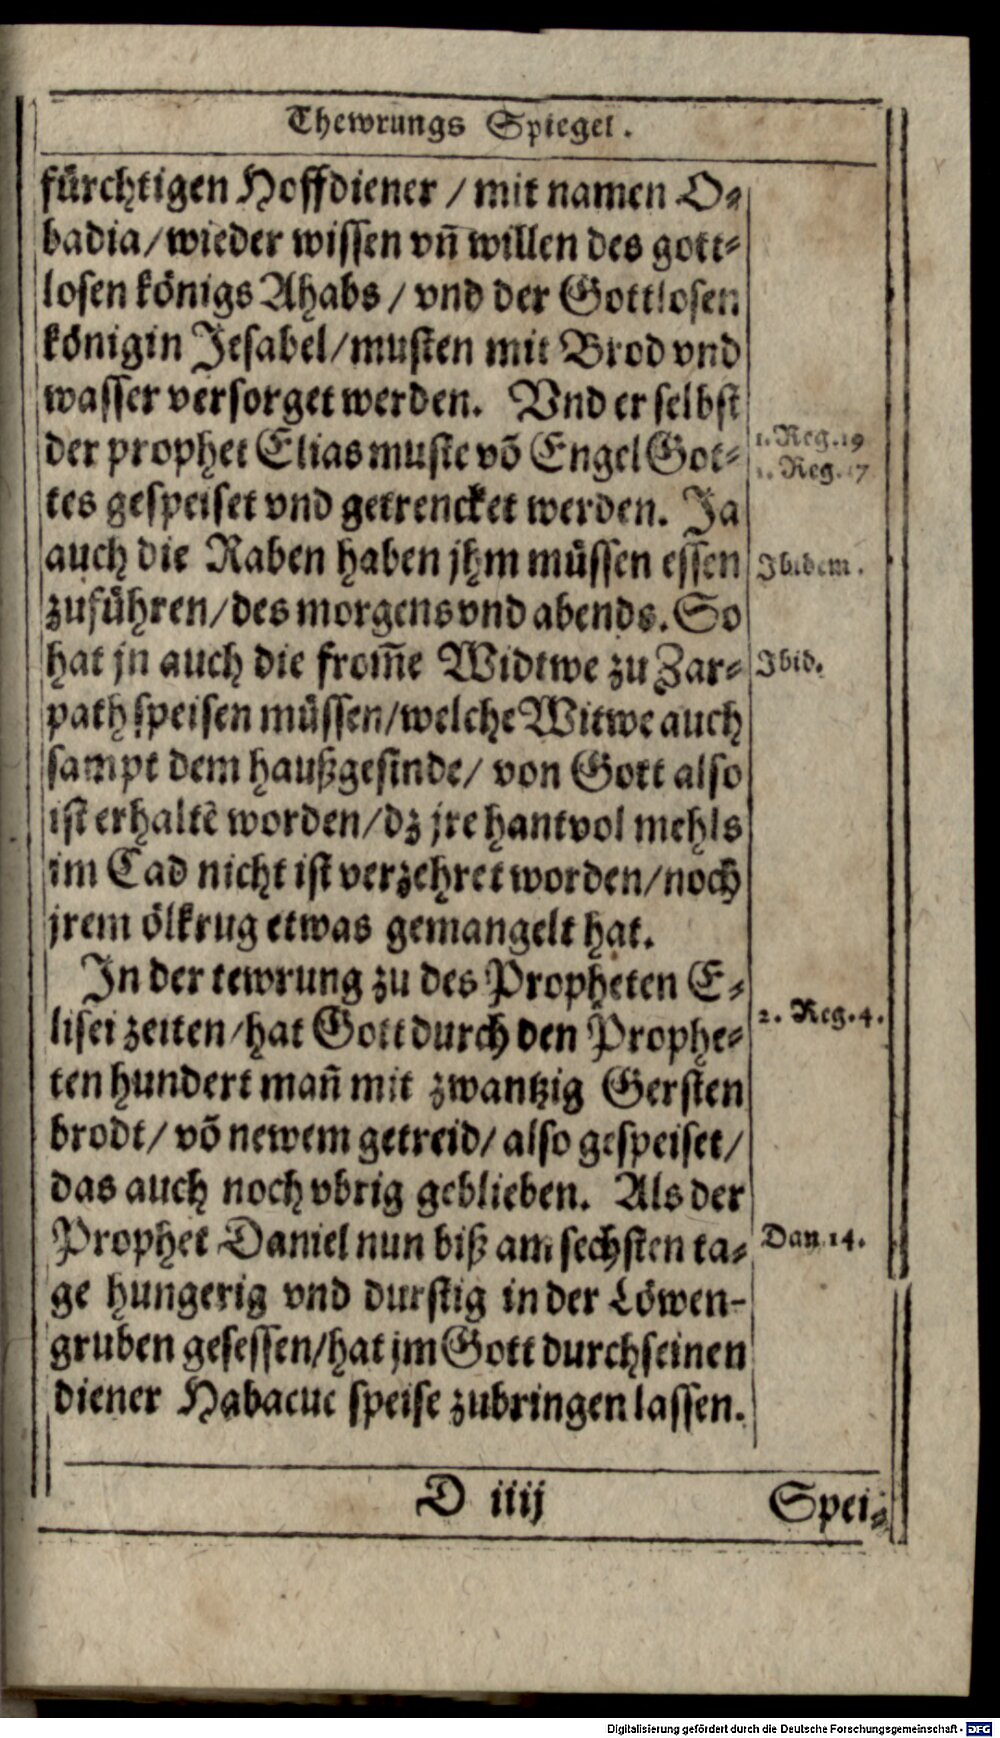 Thewrungs Spiegel.
fürchtigen Hoffdiener / mit namen O⸗
badia / wieder wissen vñ willen des gott⸗
losen königs Ahabs / vnd der Gottlosen
königin Jesabel / musten mit Brod vnd
wasser versorget werden. Vnd er selbst
der prophet Elias muste võ Engel Got⸗
1. Reg. 19
1. Reg. 17
tes gespeiset vnd getrencket werden. Ja
auch die Raben haben jhm müssen essen
Ibidem.
zuführen / des morgens vnd abends. So
hat jn auch die from̃e Widtwe zu Zar⸗
Ibid.
path speisen müssen / welche Witwe auch
sampt dem haußgesinde / von Gott also
ist erhaltẽ worden / dz jre hantvol mehls
im Cad nicht ist verzehret worden / noch
jrem ölkrug etwas gemangelt hat.
In der tewrung zu des Propheten E⸗
lisei zeiten / hat Gott durch den Prophe⸗
2. Reg. 4.
ten hundert mañ mit zwantzig Gersten
brodt / võ newem getreid / also gespeiset /
das auch noch vbrig geblieben. Als der
Prophet Daniel nun biß am sechsten ta⸗
Dan. 14.
ge hungerig vnd durstig in der Löwen-
gruben gesessen / hat jm Gott durch seinen
diener Habacuc speise zubringen lassen.
D iiij
Spei⸗
Digitalisierung gefördert durch die Deutsche Forschungsgemeinschaft - DFG